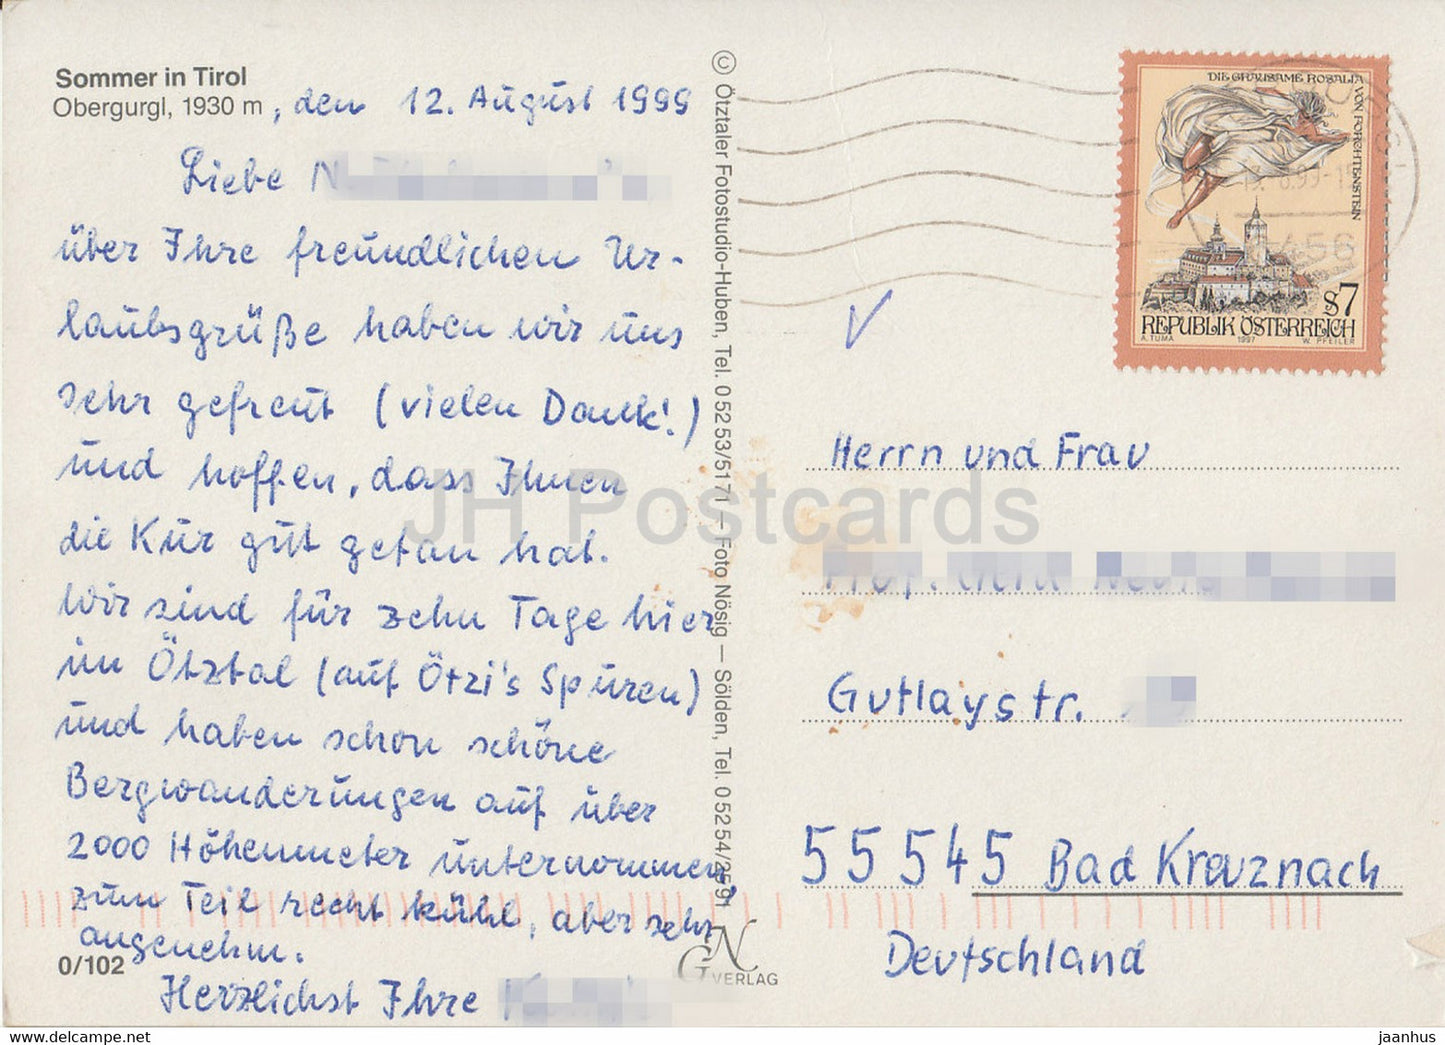 Sommer in Tirol
Obergurgl, 1930 m, den 12. August 1999
Liebe
über Ihre freundlichen Ur-
laubsgrüße haben wir uns
sehr gefreut (vielen Dank!)
und hoffen, dass Ihnen
die Kur gut getan hat.
Wir sind für zehn Tage hier
im Ötztal (auf Ötzi's Spuren)
und haben schon schöne
Bergwanderungen auf über
2000 Höhenmeter unternommen,
zum Teil recht kühl, aber sehr
angenehm.
0/102
Herzlichst Ihre
© Ötztaler Fotostudio-Huben, Tel. 05253/5171 – Foto Nösig – Sölden, Tel. 05254/2591
GN VERLAG
DIE GRAUSAME ROSALIA
VON FORCHTENSTEIN
S7
REPUBLIK ÖSTERREICH
A. TUMA 1997 W. PFEILER
456
Herrn und Frau
Gutlaystr.
55545 Bad Kreuznach
Deutschland
JH Postcards
jaanhus